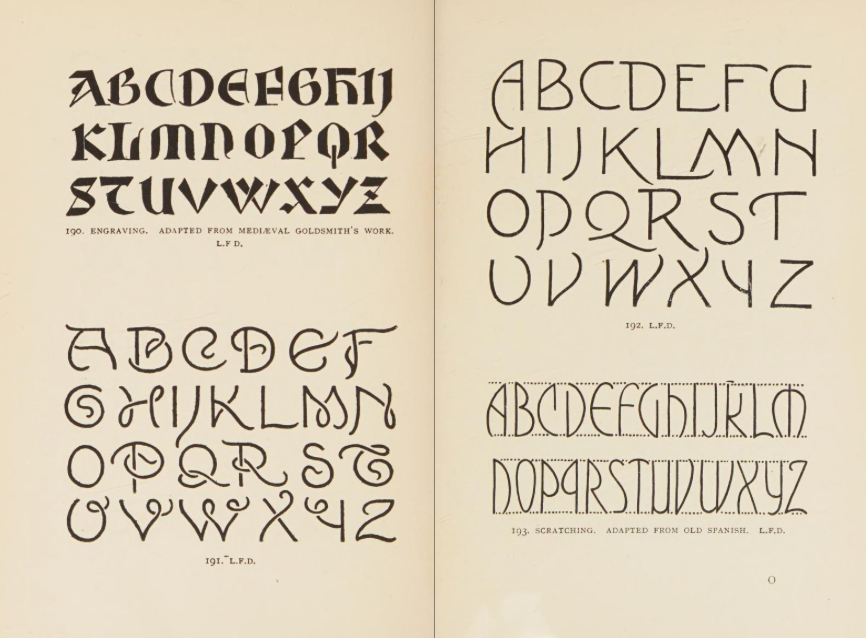 ABCDEFGhIJ
KLMNOPQR
STUVWXYZ
190. ENGRAVING. ADAPTED FROM MEDIÆVAL GOLDSMITH'S WORK.
L.F D.
ABCDEF
GHIJKLMN
OPQRST
UVWXYZ
191. L.F.D.
ABCDEFG
HIJKLMN
OPQRST
UVWXYZ
192. L.F.D.
ABCDEFGhIJKLM
NOPqRSTUVWXYZ
193. SCRATCHING. ADAPTED FROM OLD SPANISH. L.F.D.
O